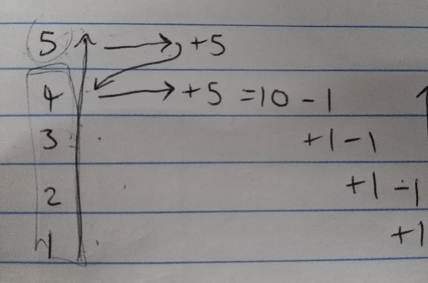 5 → +5
4 → +5 = 10 - 1
3 +1 - 1
2 +1 - 1
1 +1